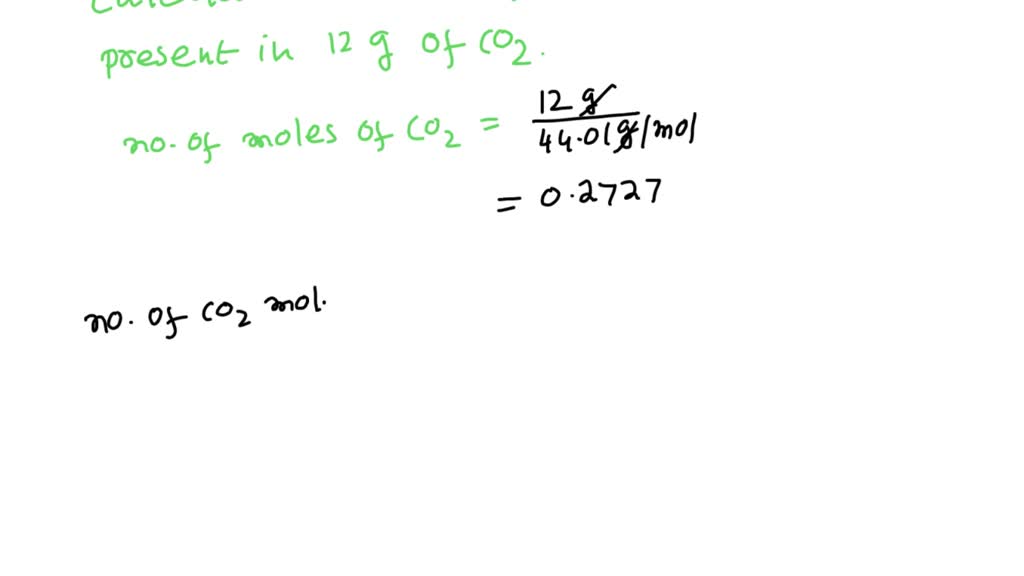 present in 12 g of CO2.
no. of moles of CO2 = 12 g / 44.01 g/mol
= 0.2727
no. of CO2 mol.